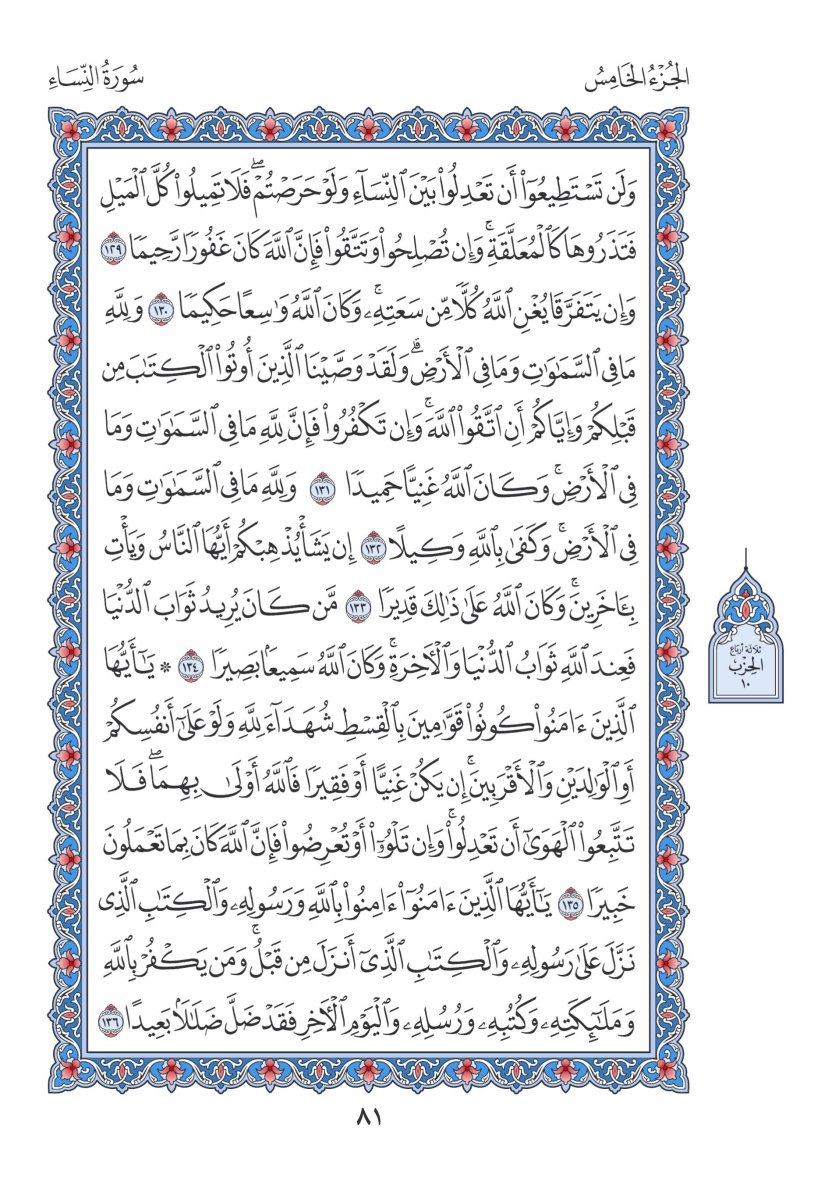 الجُزْءُ الخَامِسُ
سُورَةُ النِّسَاءِ
وَلَن تَسْتَطِيعُوٓاْ أَن تَعْدِلُواْ بَيْنَ ٱلنِّسَآءِ وَلَوْ حَرَصْتُمْۖ فَلَا تَمِيلُواْ كُلَّ ٱلْمَيْلِ
فَتَذَرُوهَا كَٱلْمُعَلَّقَةِۚ وَإِن تُصْلِحُواْ وَتَتَّقُواْ فَإِنَّ ٱللَّهَ كَانَ غَفُورًا رَّحِيمًا ١٢٩
وَإِن يَتَفَرَّقَا يُغْنِ ٱللَّهُ كُلًّا مِّن سَعَتِهِۦۚ وَكَانَ ٱللَّهُ وَٰسِعًا حَكِيمًا ١٣٠ وَلِلَّهِ
مَا فِى ٱلسَّمَٰوَٰتِ وَمَا فِى ٱلْأَرْضِۗ وَلَقَدْ وَصَّيْنَا ٱلَّذِينَ أُوتُواْ ٱلْكِتَٰبَ مِن
قَبْلِكُمْ وَإِيَّاكُمْ أَنِ ٱتَّقُواْ ٱللَّهَۚ وَإِن تَكْفُرُواْ فَإِنَّ لِلَّهِ مَا فِى ٱلسَّمَٰوَٰتِ وَمَا
فِى ٱلْأَرْضِۚ وَكَانَ ٱللَّهُ غَنِيًّا حَمِيدًا ١٣١ وَلِلَّهِ مَا فِى ٱلسَّمَٰوَٰتِ وَمَا
فِى ٱلْأَرْضِۚ وَكَفَىٰ بِٱللَّهِ وَكِيلًا ١٣٢ إِن يَشَأْ يُذْهِبْكُمْ أَيُّهَا ٱلنَّاسُ وَيَأْتِ
بِـَٔاخَرِينَۚ وَكَانَ ٱللَّهُ عَلَىٰ ذَٰلِكَ قَدِيرًا ١٣٣ مَّن كَانَ يُرِيدُ ثَوَابَ ٱلدُّنْيَا
فَعِندَ ٱللَّهِ ثَوَابُ ٱلدُّنْيَا وَٱلْأَخِرَةِۚ وَكَانَ ٱللَّهُ سَمِيعًۢا بَصِيرًا ١٣٤ * يَٰٓأَيُّهَا
ٱلَّذِينَ ءَامَنُواْ كُونُواْ قَوَّٰمِينَ بِٱلْقِسْطِ شُهَدَآءَ لِلَّهِ وَلَوْ عَلَىٰٓ أَنفُسِكُمْ
أَوِ ٱلْوَٰلِدَيْنِ وَٱلْأَقْرَبِينَۚ إِن يَكُنْ غَنِيًّا أَوْ فَقِيرًا فَٱللَّهُ أَوْلَىٰ بِهِمَاۖ فَلَا
تَتَّبِعُواْ ٱلْهَوَىٰٓ أَن تَعْدِلُواْۚ وَإِن تَلْوُۥٓاْ أَوْ تُعْرِضُواْ فَإِنَّ ٱللَّهَ كَانَ بِمَا تَعْمَلُونَ
خَبِيرًا ١٣٥ يَٰٓأَيُّهَا ٱلَّذِينَ ءَامَنُوٓاْ ءَامِنُواْ بِٱللَّهِ وَرَسُولِهِۦ وَٱلْكِتَٰبِ ٱلَّذِى
نَزَّلَ عَلَىٰ رَسُولِهِۦ وَٱلْكِتَٰبِ ٱلَّذِىٓ أَنزَلَ مِن قَبْلُۚ وَمَن يَكْفُرْ بِٱللَّهِ
وَمَلَٰٓئِكَتِهِۦ وَكُتُبِهِۦ وَرُسُلِهِۦ وَٱلْيَوْمِ ٱلْأَخِرِ فَقَدْ ضَلَّ ضَلَٰلًۢا بَعِيدًا ١٣٦
ثلاثة أرباع
الحِزْب
١٠
٨١